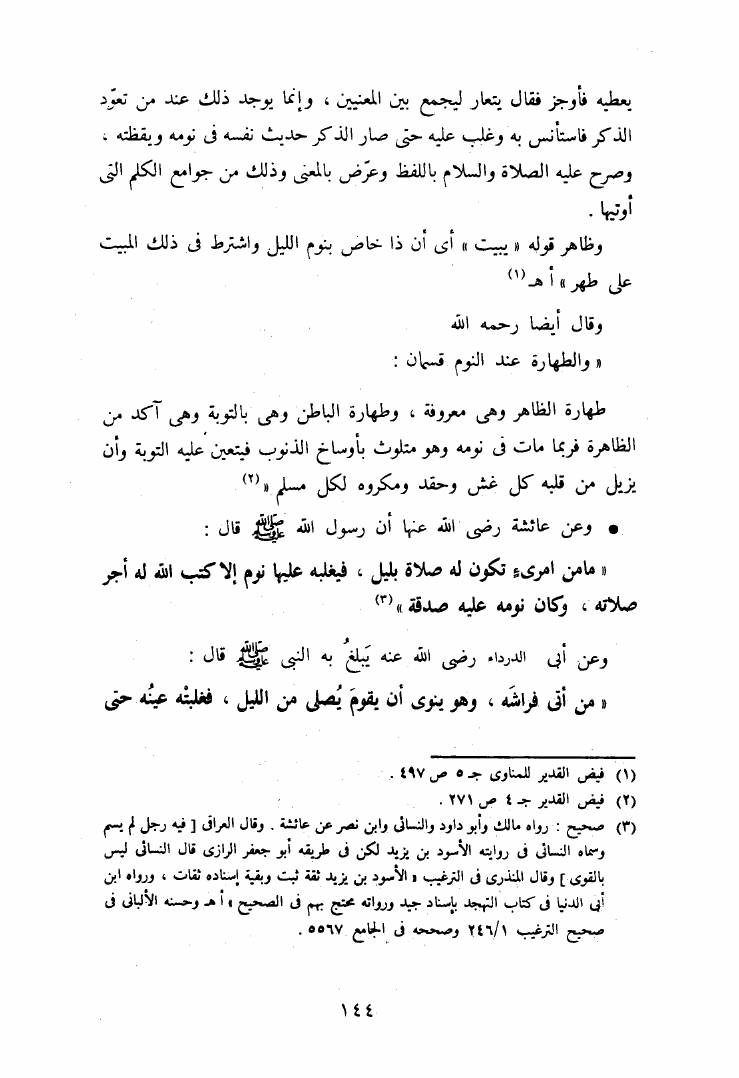 يعطيه فأوجز فقال يتعار ليجمع بين المعنيين ، وإنما يوجد ذلك عند من تعوّد
الذكر فاستأنس به وغلب عليه حتى صار الذكر حديث نفسه فى نومه ويقظته ،
وصرح عليه الصلاة والسلام باللفظ وعرّض بالمعنى وذلك من جوامع الكلم التى
أوتيها .
وظاهر قوله « يبيت » أى أن ذا خاص بنوم الليل واشترط فى ذلك المبيت
على طهر » أ هـ(١)
وقال أيضا رحمه الله
« والطهارة عند النوم قسمان :
طهارة الظاهر وهى معروفة ، وطهارة الباطن وهى بالتوبة وهى آكد من
الظاهرة فربما مات فى نومه وهو متلوث بأوساخ الذنوب فيتعين عليه التوبة وأن
يزيل من قلبه كل غش وحقد ومكروه لكل مسلم »(٢)
• وعن عائشة رضى الله عنها أن رسول الله ﷺ قال :
« مامن امرىءٍ تكون له صلاة بليل ، فيغلبه عليها نوم إلا كتب الله له أجر
صلاته ، وكان نومه عليه صدقة »(٣)
وعن أبى الدرداء رضى الله عنه يَبلغُ به النبى ﷺ قال :
« من أتى فراشَه ، وهو ينوى أن يقومَ يُصلى من الليل ، فغلبتْه عينُه حتى
(١) فيض القدير للمناوى جـ ٥ ص ٤٩٧ .
(٢) فيض القدير جـ ٤ ص ٢٧١ .
(٣) صحيح : رواه مالك وأبو داود والنسائى وابن نصر عن عائشة . وقال العراقى [ فيه رجل لم يسم
وسماه النسائى فى روايته الأسود بن يزيد لكن فى طريقه أبو جعفر الرازى قال النسائى ليس
بالقوى ] وقال المنذرى فى الترغيب « الأسود بن يزيد ثقة ثبت وبقية إسناده ثقات ، ورواه ابن
أبى الدنيا فى كتاب التهجد بإسناد جيد ورواته محتج بهم فى الصحيح » أ هـ وحسنه الألبانى فى
صحيح الترغيب ٢٤٦/١ وصححه فى الجامع ٥٥٦٧ .
١٤٤